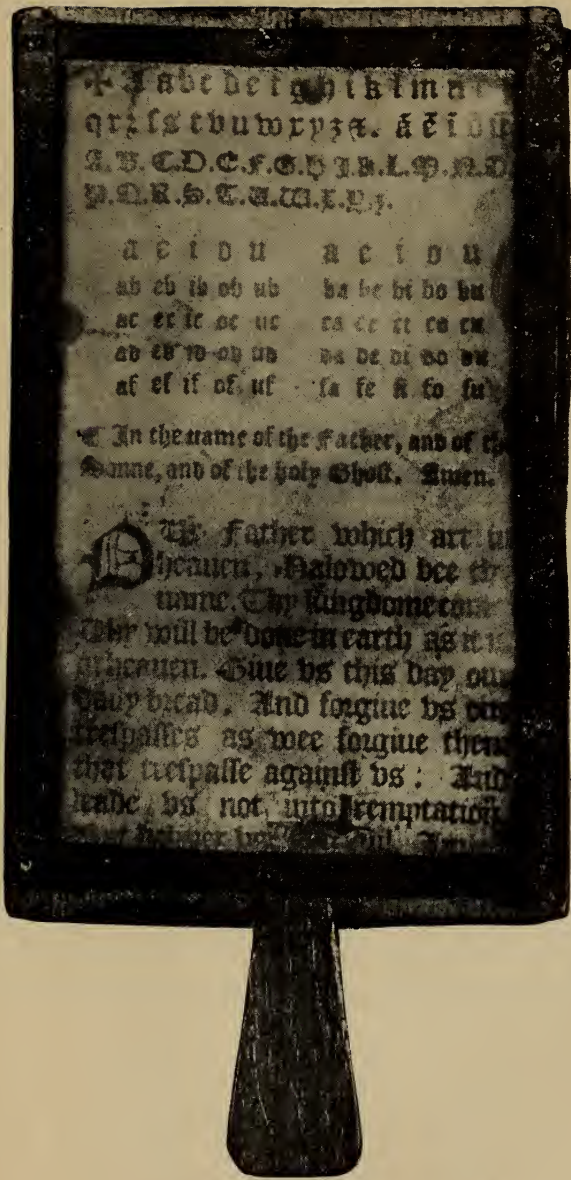 ✠ A a b c d e f g h i k l m n
q r ꝛ ſ s t v u w x y z &. ã ẽ ĩ õ
A.B.C.D.E.F.G.H.I.K.L.M.N.O
P.Q.R.S.T.U.W.X.Y.Z.
a e i o u a e i o u
ab eb ib ob ub ba be bi bo bu
ac ec ic oc uc ca ce ci co cu
ad ed id od ud da de di do du
af ef if of uf fa fe fi fo fu
¶ In the name of the Father, and of
Sonne, and of the holy Ghoſt. Amen.
OUr Father which art in
heauen, Halowed bee
name. Thy kingdome
Thy will be done in earth as it is
in heauen. Giue vs this day our
dayly bread. And forgiue vs our
treſpaſſes as wee forgiue them
that treſpaſſe againſt vs: And
leade vs not into temptation
But deliuer vs